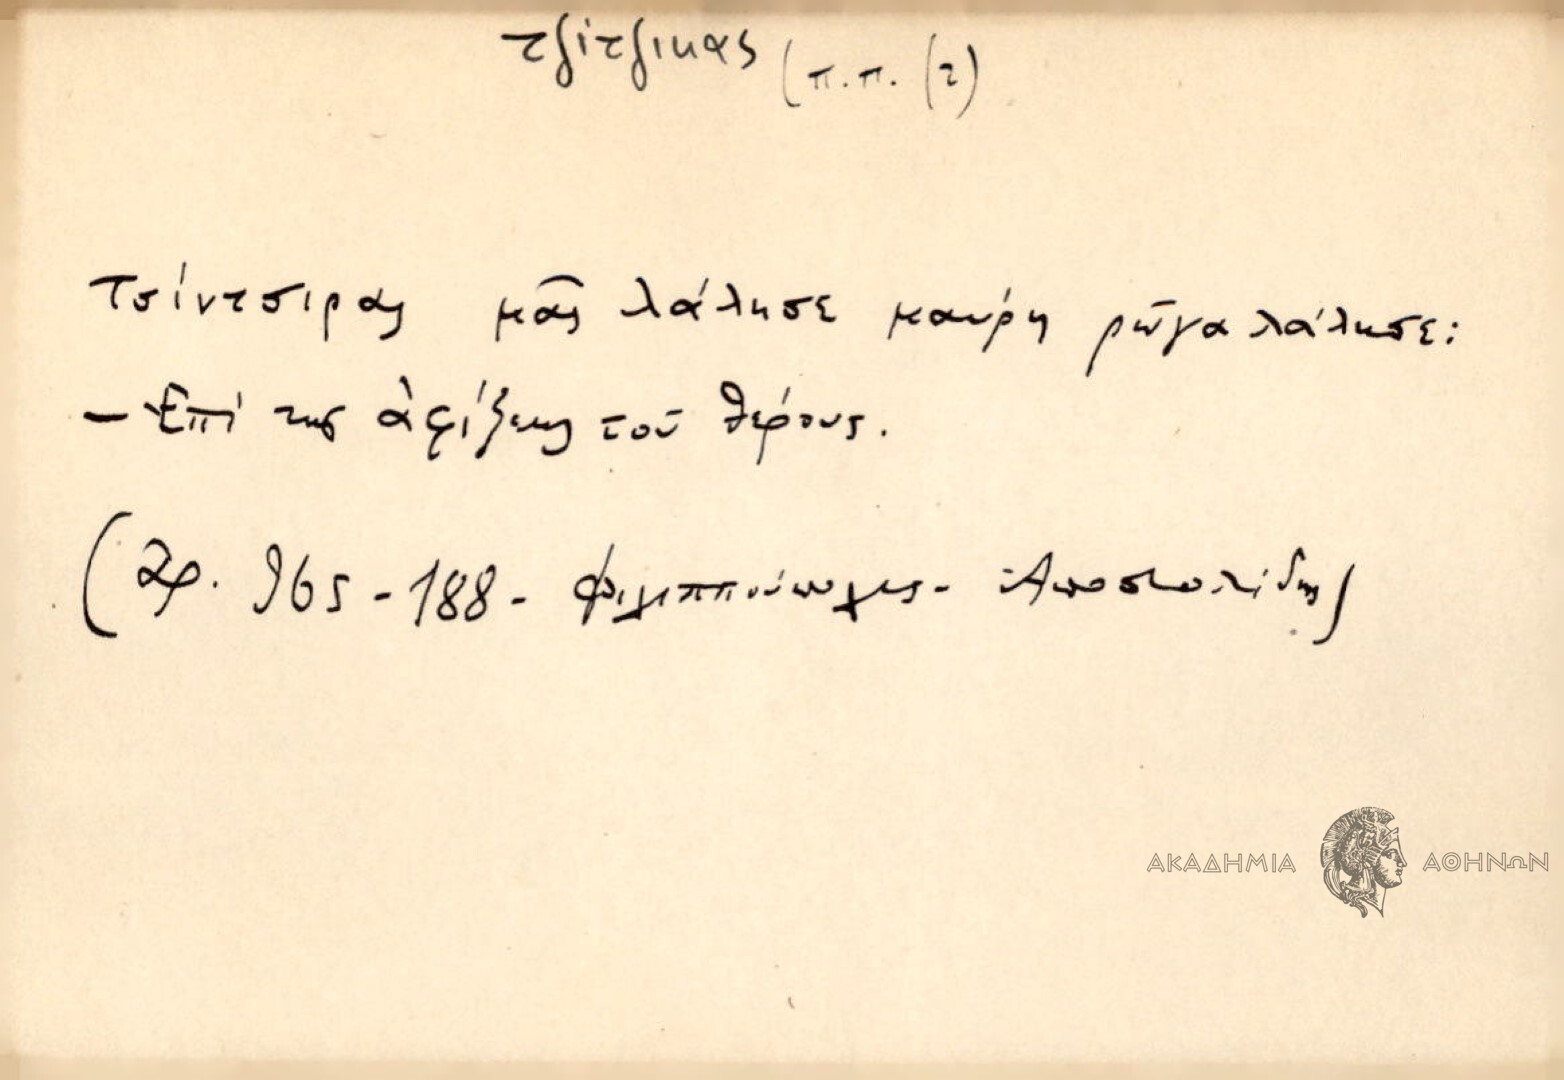 τζίτζικας (π.π. (2)
Τσίντσιρας μᾶς λάλησε μαύρη ρῶγα λάλησε:
- Ἐπί της ἀφίξεως τοῦ θέρους.
(Ἀρ. 965 - 188 - Φιλιππούπολις - Ἀποστολίδης)
ΑΚΑΔΗΜΙΑ ΑΘΗΝΩΝ